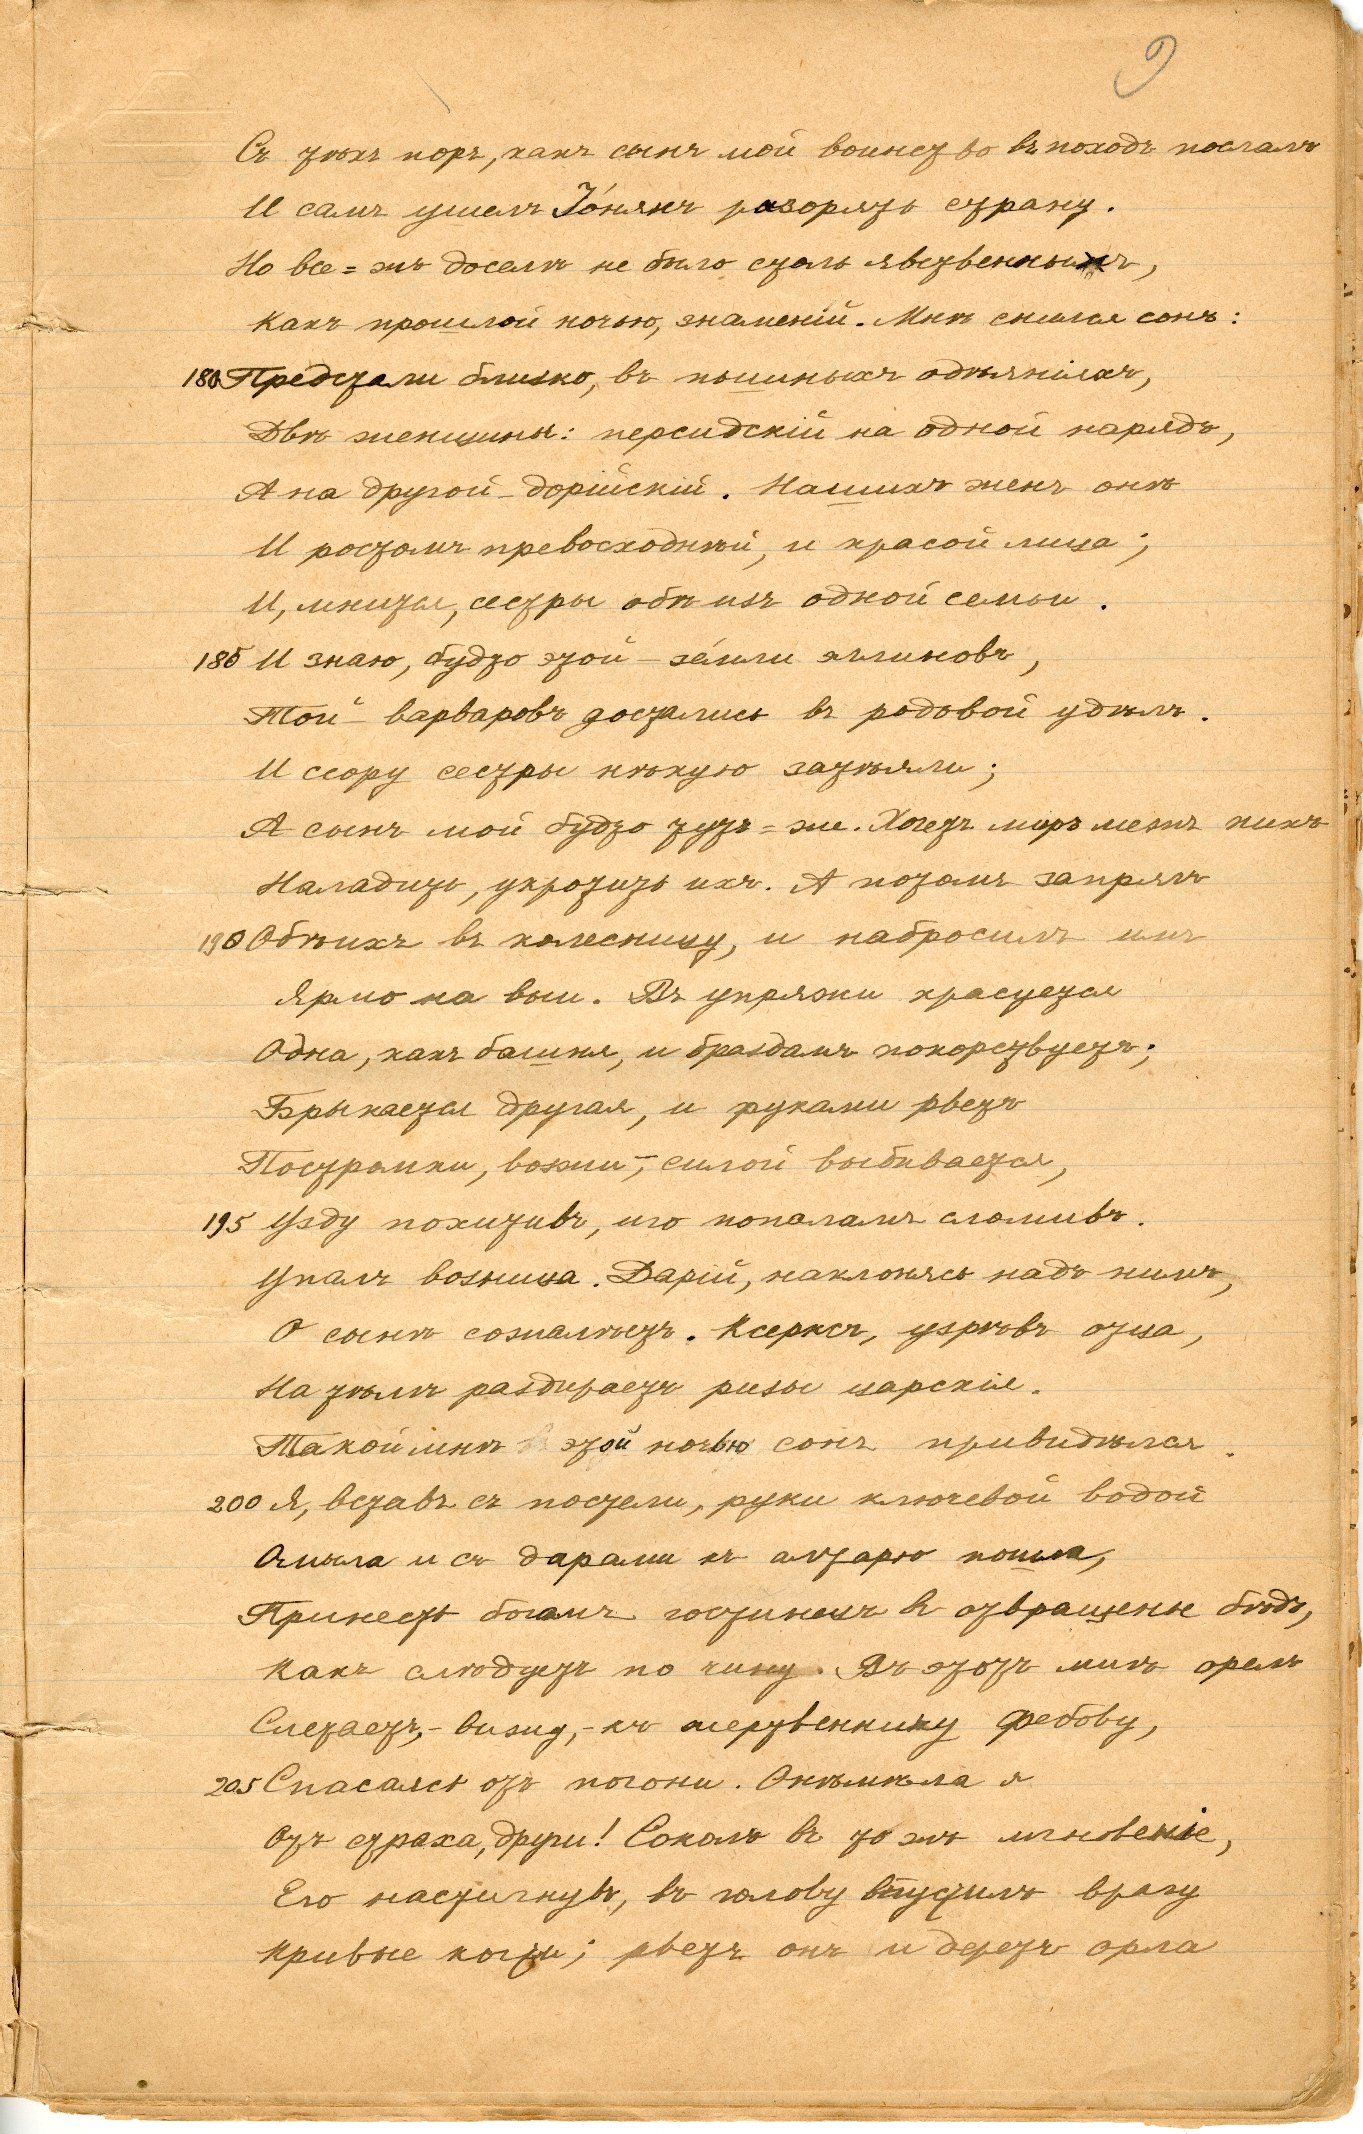 9
Съ тѣхъ поръ, какъ сынъ мой воинство въ походъ послалъ
И самъ ушелъ Іо́нянъ разорять страну.
Но все-жъ доселѣ не было столь явственныхъ,
Какъ прошлой ночью, знаменій. Мнѣ снился сонъ:
180 Предстали близко, въ пышныхъ одѣяніяхъ,
Двѣ женщины: персидскій на одной нарядъ,
А на другой – дорійскій. Нашихъ женъ онѣ
И ростомъ превосходнѣй, и красой лица;
И, мнится, сестры обѣ изъ одной семьи.
185 И знаю, будто этой – зе́мли эллиновъ,
Той – варваровъ достались въ родовой удѣлъ.
И ссору сестры нѣкую затѣяли;
А сынъ мой будто тутъ-же. Хочетъ миръ межъ нихъ
Наладить, укротить ихъ. А потомъ запрягъ
190 Обѣихъ въ колесницу, и набросилъ имъ
Ярмо на выи. Въ упряжи красуется
Одна, какъ башня, и браздамъ покорствуетъ;
Брыкается другая, и руками рветъ
Постромки, вожжи –, силой выбивается,
195 Узду похитивъ, иго пополамъ сломивъ.
Упалъ возница. Дарій, наклонясь надъ нимъ,
О сынѣ сожалѣетъ. Ксерксъ, узрѣвъ отца,
На тѣлѣ раздираетъ ризы царскіе.
Такой мнѣ этой ночью сонъ привидѣлся.
200 Я, вставъ съ постели, руки ключевой водой
Омыла и съ дарами къ алтарю пошла,
Принесть богамъ гостинецъ въ отвращенье бѣдъ,
Какъ слѣдуетъ по чину. Въ этотъ мигъ орелъ
Слетаетъ, – вижу, – къ жертвеннику Фебову,
205 Спасаясь отъ погони. Онѣмѣла я
Отъ страха, други! Соколъ въ то жъ мгновеніе,
Его настигнувъ, въ голову впустилъ врагу
Кривые когти; рветъ онъ и деретъ орла